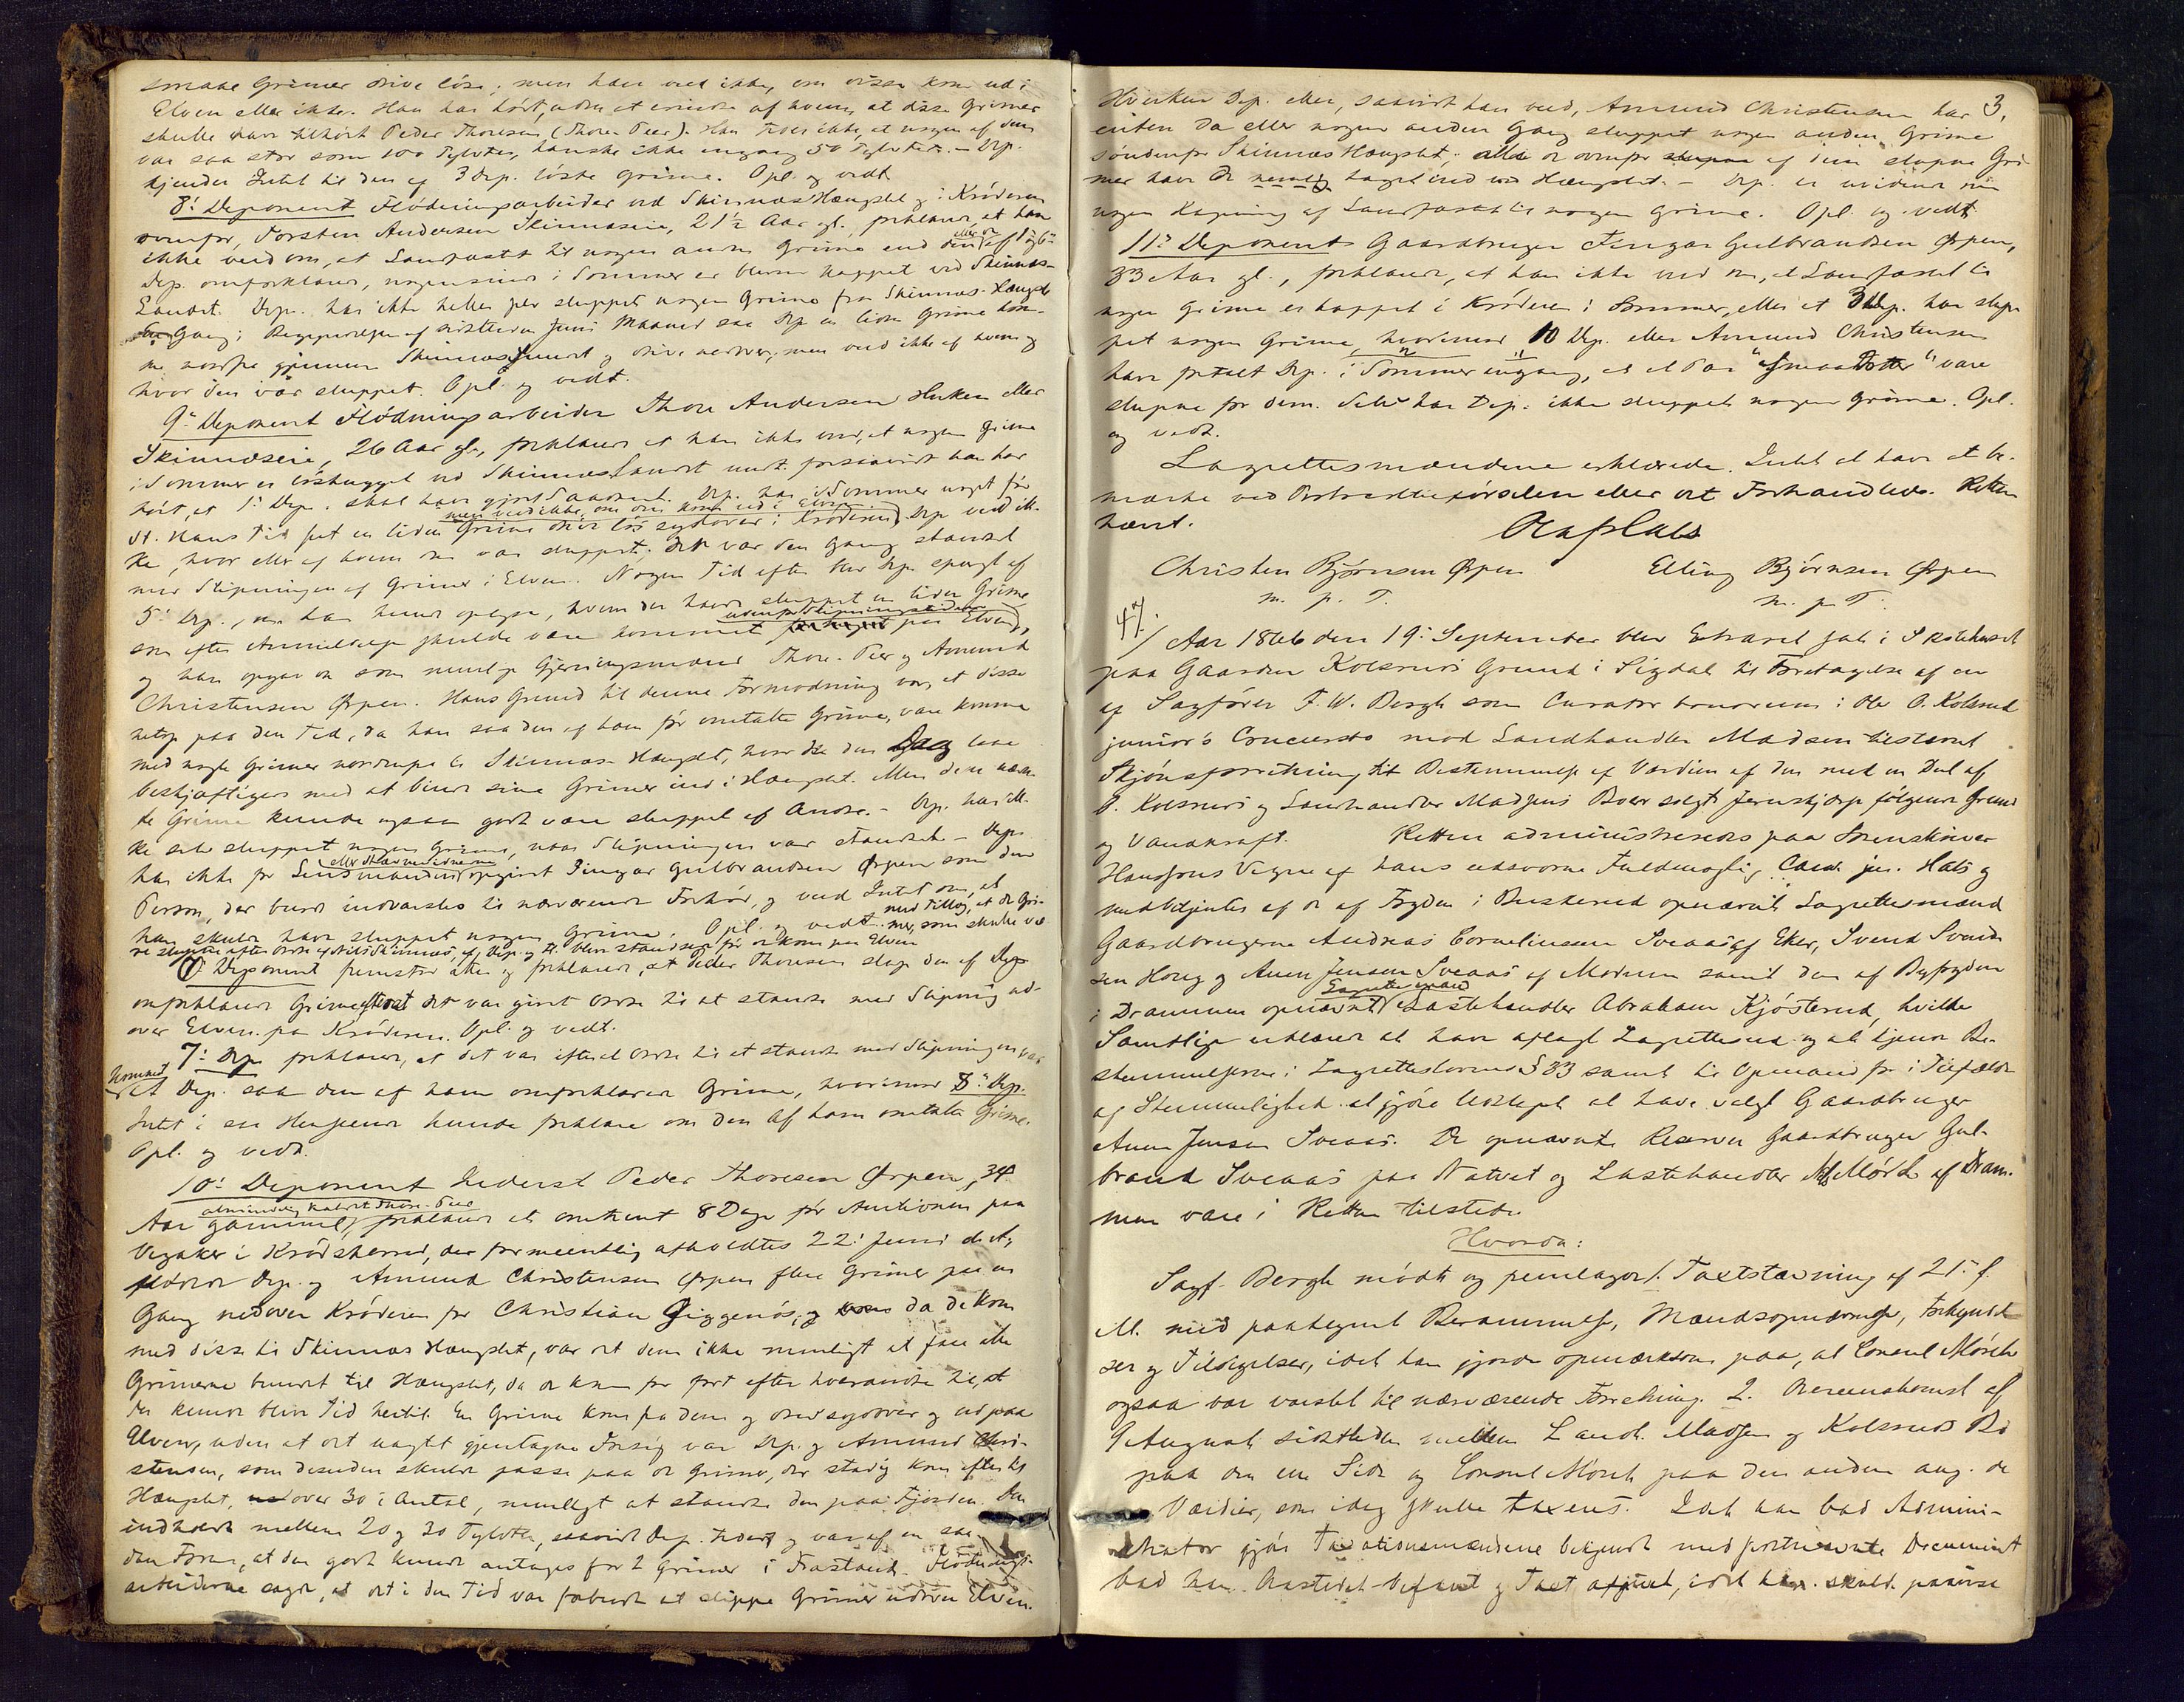 smaae Grimer drive løse; men han ved ikke, om disse kom ud i
Elven eller ikke. Han har hørt, uden at erindre af hvem, at disse Grimer
skulle have tilhørt Peder Thoresen (Thore-Peer). Han troer ikke, at nogen af dem
var saa stor som 100 Tylvter, kanske ikke engang 50 Tylvter. – Dep.
kjender Intet til den af 3 Dep. løste Grime. Opl. og vedt.
8: Deponent Flødningsarbeider ved Skinnæs Hængslet og i Krøderen
ovenfor, Torsten Andersen Skinnæseie, 21½ Aar gl., forklarer, at han
ikke ved om, at Landfæstet til nogen anden Grime end den eller de af 1 og 6
Dep. omforklarer, nogensinde i Sommer er bleven kappet ved Skinnæs-
Landet. Dep. har ikke heller før sluppet nogen Grime fra Skinnæs-Hængsle
Gang i Begyndelsen af sidstleden Juni Maaned saa Dep. en liden Grime kom-
me nordfra gjennem Skinnæssundet og drive nedover, men ved ikke af hvem og
hvor den var sluppet. Opl. og vedt.
9: Deponent Flødningsarbeider Thore Andersen Hurken eller
Skinnæseie, 26 Aar gl., forklarer at han ikke ved, at nogen Grime
i Sommer er løshugget ved Skinnæs Landet undt. forsaavidt han har
hørt, at 1: Dep. skal have gjort saadant. Dep. har i Sommer noget før
St. Hans Tid seet en liden Grime drive løs sydover i Krøderen, men ved ikke, om den kom ud i Elven. Dep. ved ik-
ke, hvor eller af hvem den var sluppet; det var den Gang standset
med Slipningen af Grimer i Elven. Nogen Tid efter blev Dep. spurgt af
5: Dep., om han kunde oplyse, hvem der havde sluppet en liden Grime
som efter Anmeldelse skulde være kommet udenfor Slipningstiden paa Elven,
og han opgav da som muelige Gjerningsmænd Thore-Peer og Amund
Christensen Ørpen. Hans Grund til denne Formodning var, at disse
netop paa den Tid, da han saa den af ham før omtalte Grime, vare komne
med nogle Grimer nordenfra til Skinnæs-Hængslet, hvor de den Dag vare
beskjæftigede med at binde sine Grimer ind i Hængslet. Men denne nævn-
te Grime kunde ogsaa godt være sluppet af Andre. – Dep. har ik-
ke selv sluppet nogen Grime, naar Slipningen var standset. – Dep.
har ikke for Lensmanden eller Stævnevidnerne opgivet Fingar Gulbrandsen Ørpen som den
Person, der burde indvarsles til nærværende Forhør, og ved Intet om, at
han skulde have sluppet nogen Grime. Opl. og vedt. med Tillæg, at de Gri-
mer, som skulde væ-
re slupne efter Ordre af Nils Skinnæs, af Dep. og Fl. blev standset før de kom paa Elven
6: Deponent fremstod atter og forklarer, at Peder Thoresen slap den af Dep.
omforklarede Grime efterat der var givet Ordre til at standse med Slipning ud-
over Elven fra Krøderen. Opl. og vedt.
7: Dep. forklarer, at det var efterat Ordre til at standse med Slipningen var
kommet
at Dep. saa den af ham omforklarede Grime, hvorimod 8: Dep.
Intet i saa Henseende kunde forklare om den af ham omtalte Grime.
Opl. og vedt.
10: Deponent Inderst Peder Thoresen Ørpen, 34
Aar gammel, almindelig kaldet Thore-Peer, forklarer at omtrent 8 Dage før Auctionen paa
Vegaker i Krødsherred, der formeentlig afholdtes 22: Juni d. A.,
flødede Dep. og Amund Christensen Ørpen flere Grimer paa en
Gang nedover Krøderen for Christian Gjiggenøs, og da de kom
med disse til Skinnæs Hængslet, var det dem ikke mueligt at faae alle
Grimerne bundet til Hængslet, da de kom for fort efter hverandre til, at
der kunde blive Tid hertil. En Grime kom fra dem og drev sydover og ud paa
Elven, uden at det uagtet gjentagne Forsøg var Dep. og Amund Chri-
stensen, som desuden skulde passe paa de Grimer, der stadig kom efter til
Hængslet, over 30 i Antal, mueligt at standse den paa Fjorden. Den
indholdt mellem 20 og 30 Tylvter, saavidt Dep. troer, og var af en saa-
dan Form, at den godt kunde antages for 2 Grimer i Frastand. Flødnings-
arbeiderne sagde, at det i den Tid var forbudt at slippe Grimer udover Elven.
3.
Hverken Dep. eller, saavidt han ved, Amund Christensen har
enten da eller nogen anden Gang sluppet nogen anden Grime
søndenfor Skinnæs Hængslet; alle de ovenfor af dem slupne Gri-
mer have de nemlig taget ind ved Hængslet. – Dep. er uvidende om
nogen Kapning af Landfæstet til nogen Grime. Opl. og vedt.
11: Deponent Gaardbruger Fingar Gulbrandsen Ørpen,
33 Aar gl., forklarer, at han ikke ved om, at Landfæstet til
nogen Grime er kappet i Krøderen i Sommer, eller at 3 Dep. har slup-
pet nogen Grime, hvorimod 10 Dep. eller Amund Christensen
have fortalt Dep. i Sommer engang, at et Par "Smaadotter" vare
slupne for dem. Selv har Dep. ikke sluppet nogen Grime. Opl.
og vedt.
Lagrettesmændene erklærede Intet at have at be-
mærke ved Protocoltilførselen eller det Forhandlede. Retten
hævet.
Christen Bjørnsen Ørpen Elling Bjørnsen Ørpen
m. p. P. m. p. P.
Aar 1866 den 19: September blev Extraret sat i Skolehuset
paa Gaarden Kolsruds Grund i Sigdal til Foretagelse af en
af Sagfører F. W. Bergh som Curator bonorum i Ole O. Kolsrud
junior's Concursbo mod Landhandler Madsen tilstævnt
Skjønsforretning til Bestemmelse af Værdien af den med en Deel af
O. Kolsruds og Landhandler Madsens Boer solgte Jernskjærp følgende Grund
og Vandkraft. Retten administreredes paa Sorenskriver
Hanssons Vegne af hans edsvorne Fuldmægtig, Cand. jur. Hals og
medbetjentes af de af Fogden i Buskerud opnævnte Lagrettesmænd
Gaardbrugerne Andreas Cornelinssen Sveaas af Eker, Svend Svend-
sen Houg og Anen Jensen Sveaas af Modum samt den af Byfogden
i Drammen opnævnte Lagrettesmand Lastehandler Abraham Kjøsterud, hvilke
Samtlige erklærer at have aflagt Lagretteseed og at kjende Be-
stemmelserne i Lagrettelovens § 33 samt til Opmand for i Tilfælde
af Stemmelighed at gjøre Udslaget at have valgt Gaardbruger
Anen Jensen Sveaas. De opnævnte Reserver Gaardbruger Gul-
brand Sveaas paa Natvet og Lastehandler Mørch af Dram-
men vare i Retten tilstede.
Hvorda:
Sagf. Bergh mødte og fremlagde 1. Taxtstævning af 21: f.
M. med paategnet Berammelse, Mandsopnævnelse, Forkyndel-
ser og Tilsigelser, idet han gjorde opmærksom paa, at Consul Mørch
ogsaa var varslet til nærværende Forretning. 2. Overeenskomst af
9 August sidstleden mellem Landh. Madsen og Kolsruds Bo
paa den ene Side og Consul Mørch paa den anden ang. de
Værdier, som idag skulle taxeres. Idet han bad Admini-
strator gjøre Taxationsmændene bekjendt med sidstnævnte Document
bad han Aastedet befaret og Taxt afgivet, idet han skulde paavise